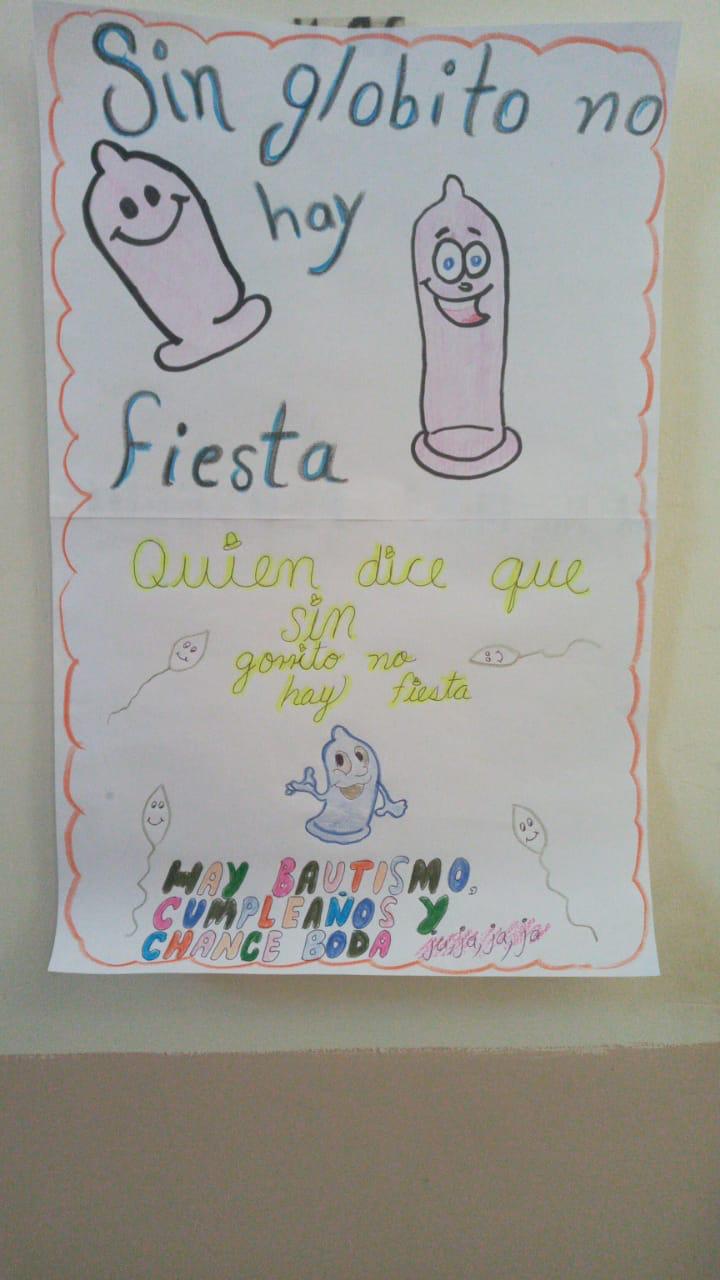 Sin globito no
hay
fiesta
Quien dice que
sin
gorrito no
hay fiesta
HAY BAUTISMO,
CUMPLEAÑOS Y
CHANCE BODA ja, ja, ja, ja